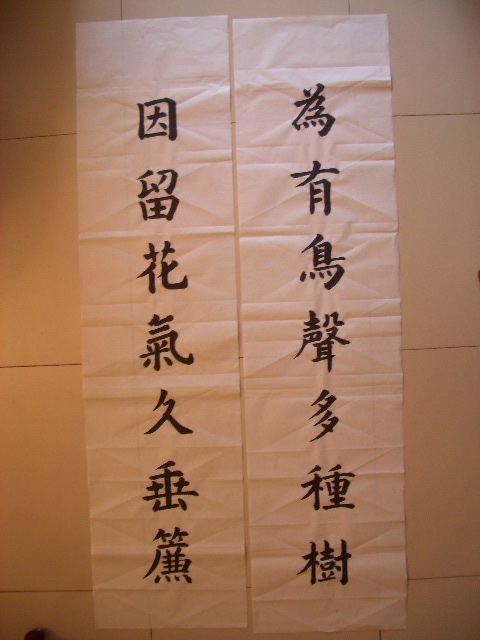 為有鳥聲多種樹
因留花氣久垂簾